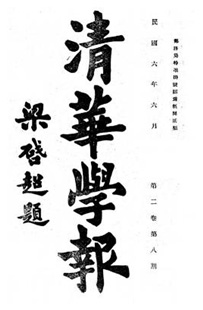 民國六年六月
第二卷第八期
清華學報
梁啓超題